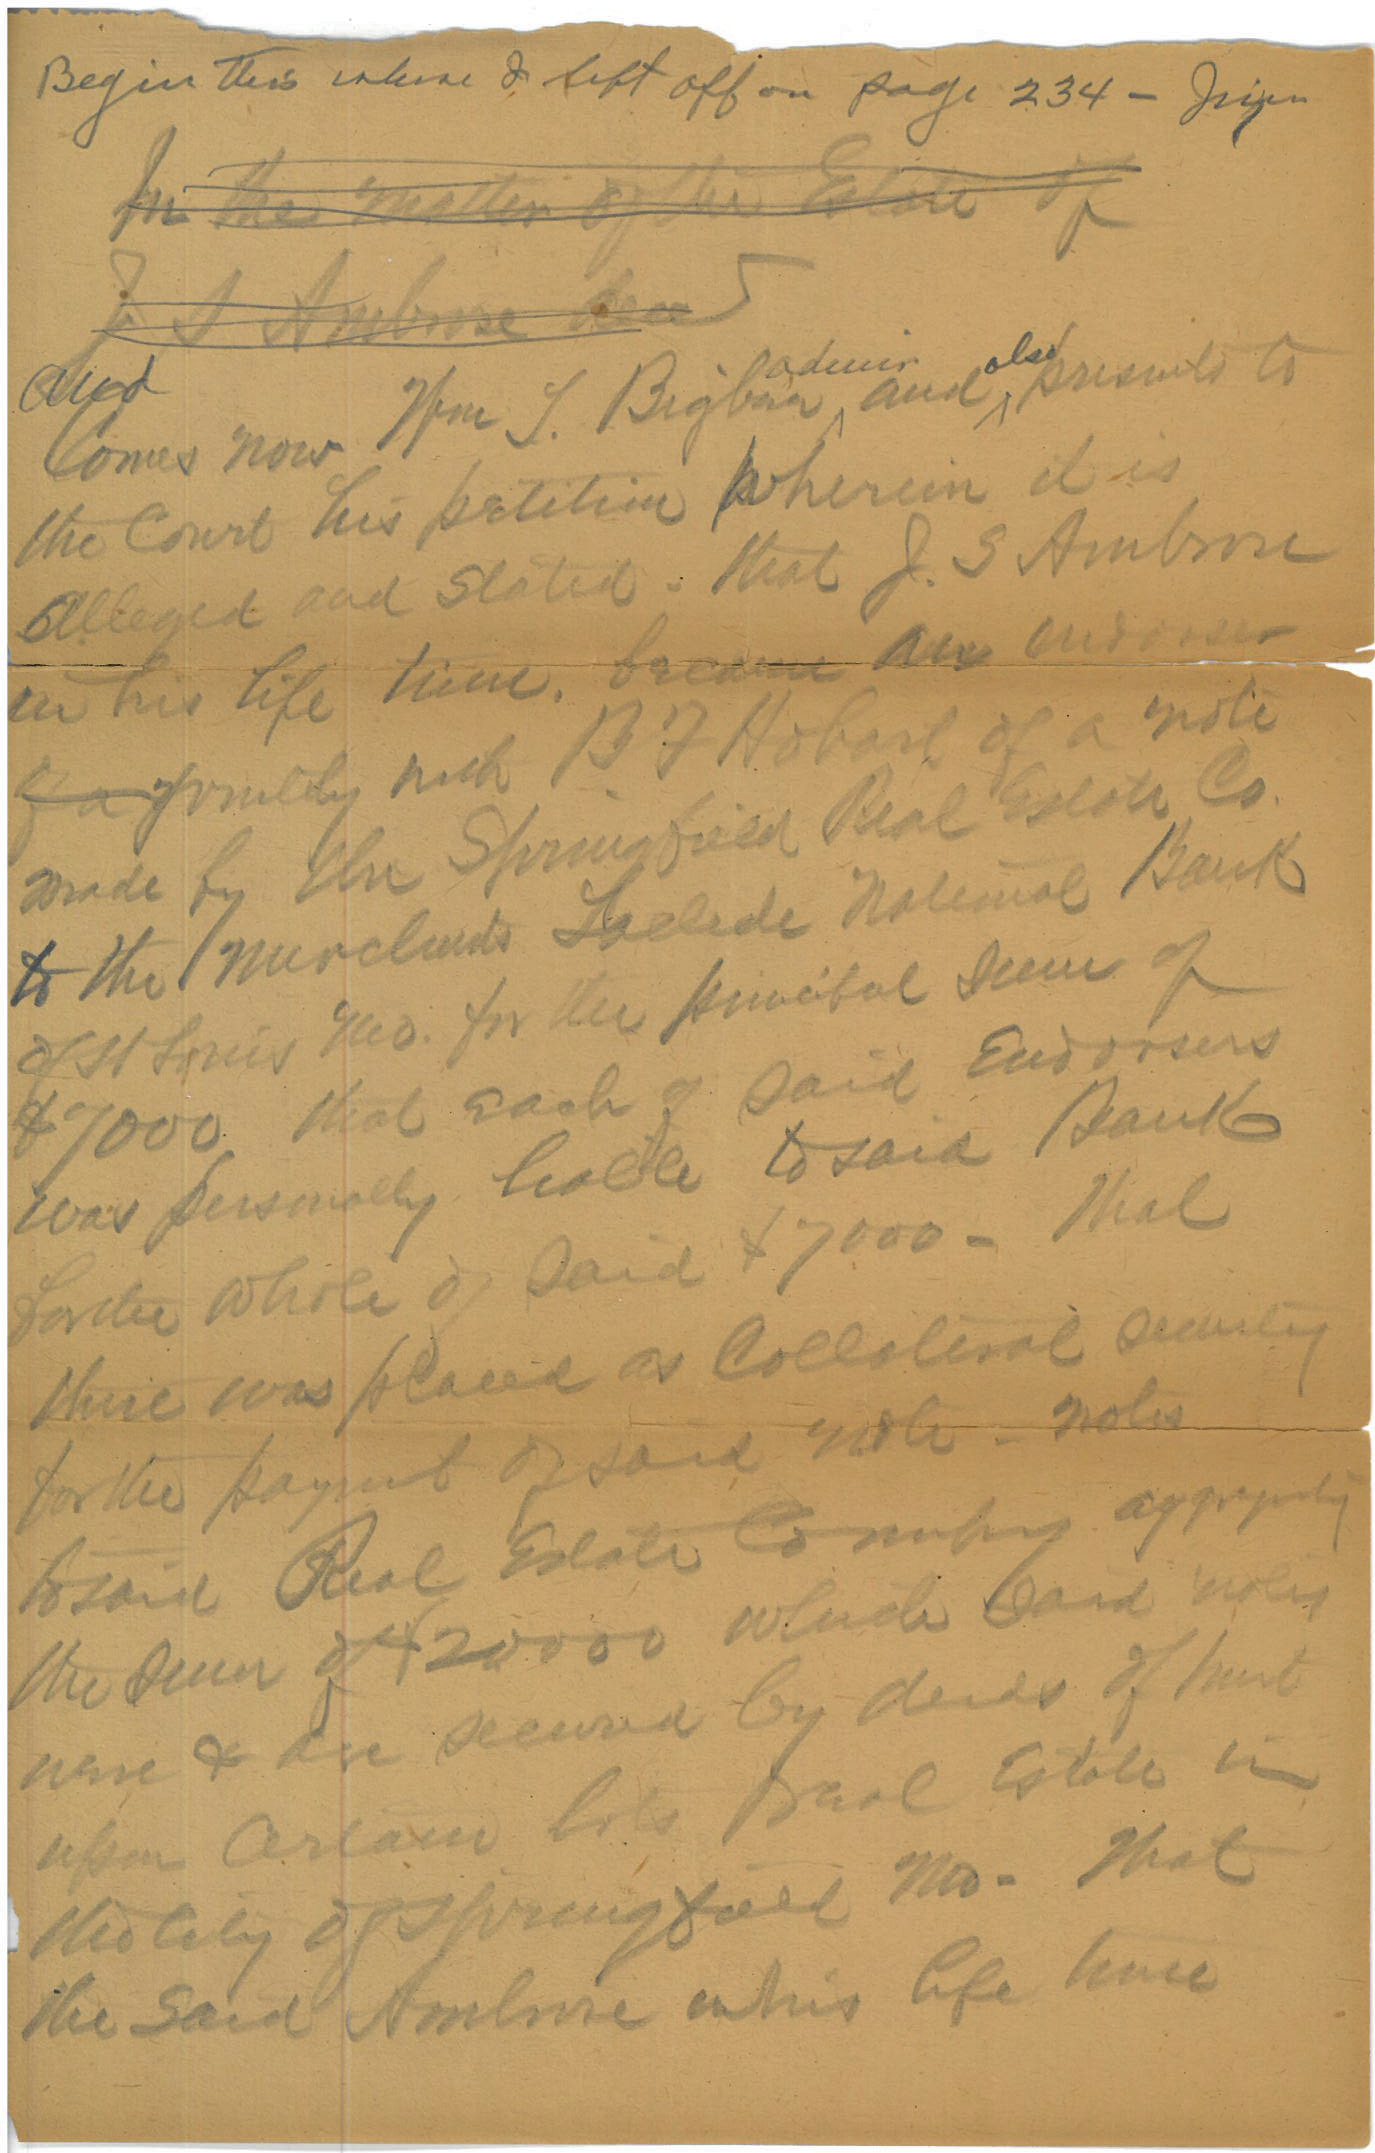 Begin this where I left off on page 234 —
In the matter of the Estate of
J S Ambrose decd
and
Comes now Wm T. Bigbee admin and also presents to
the Court his petition wherein it is
alleged and stated - that J. S Ambrose
in his life time. became an endorser
of a jointly with B F Hobart of a note
made by the Springfield Real Estate Co.
to the Merchants Laclede National Bank
of St Louis Mo. for the principal sum of
$7000 that each of said Endorsers
was personally liable to said Bank
for the whole of said $7000 - That
there was placed as Collateral security
for the paymt of said note - notes
to said Real Estate Company aggregating
the sum of $20000 which said notes
were & are secured by deeds of trust
upon certain lots real Estate in
the City of Springfield Mo - That
the said Ambrose in his life time